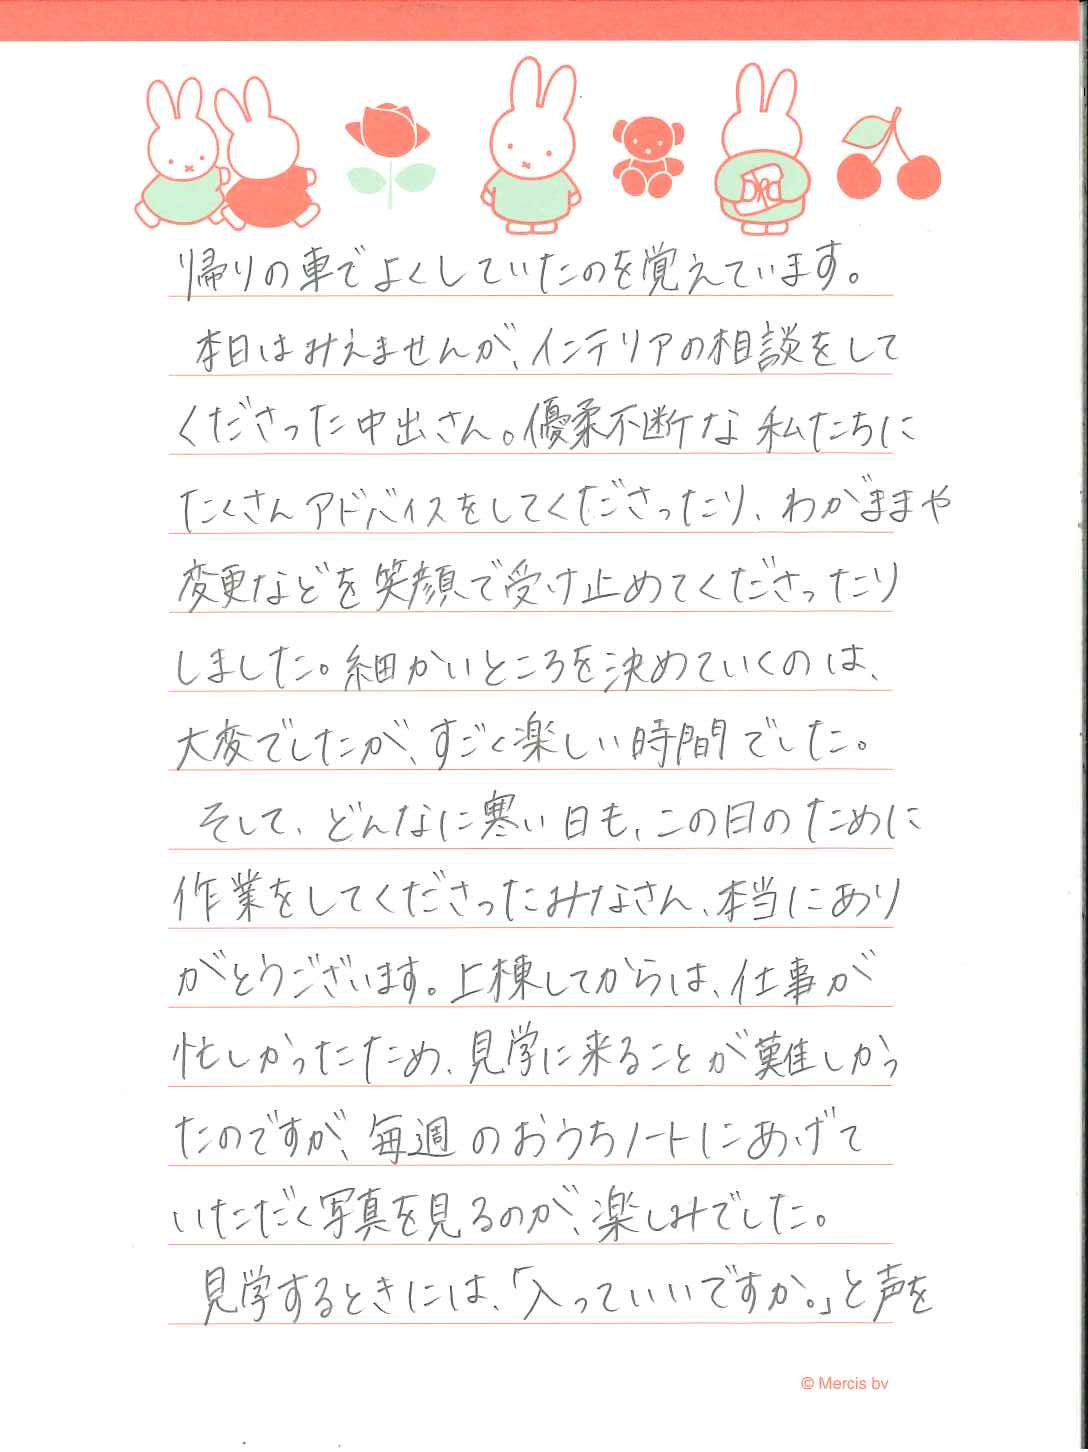 帰りの車でよくしていたのを覚えています。
本日はみえませんが、インテリアの相談をして
くださった中出さん。優柔不断な私たちに
たくさんアドバイスをしてくださったり、わがままや
変更などを笑顔で受け止めてくださったり
しました。細かいところを決めていくのは、
大変でしたが、すごく楽しい時間でした。
そして、どんなに寒い日も、この日のために
作業をしてくださったみなさん、本当にあり
がとうございます。上棟してからは、仕事が
忙しかったため、見学に来ることが難しかっ
たのですが、毎週のおうちノートにあげて
いただく写真を見るのが、楽しみでした。
見学するときには、「入っていいですか。」と声を
© Mercis bv